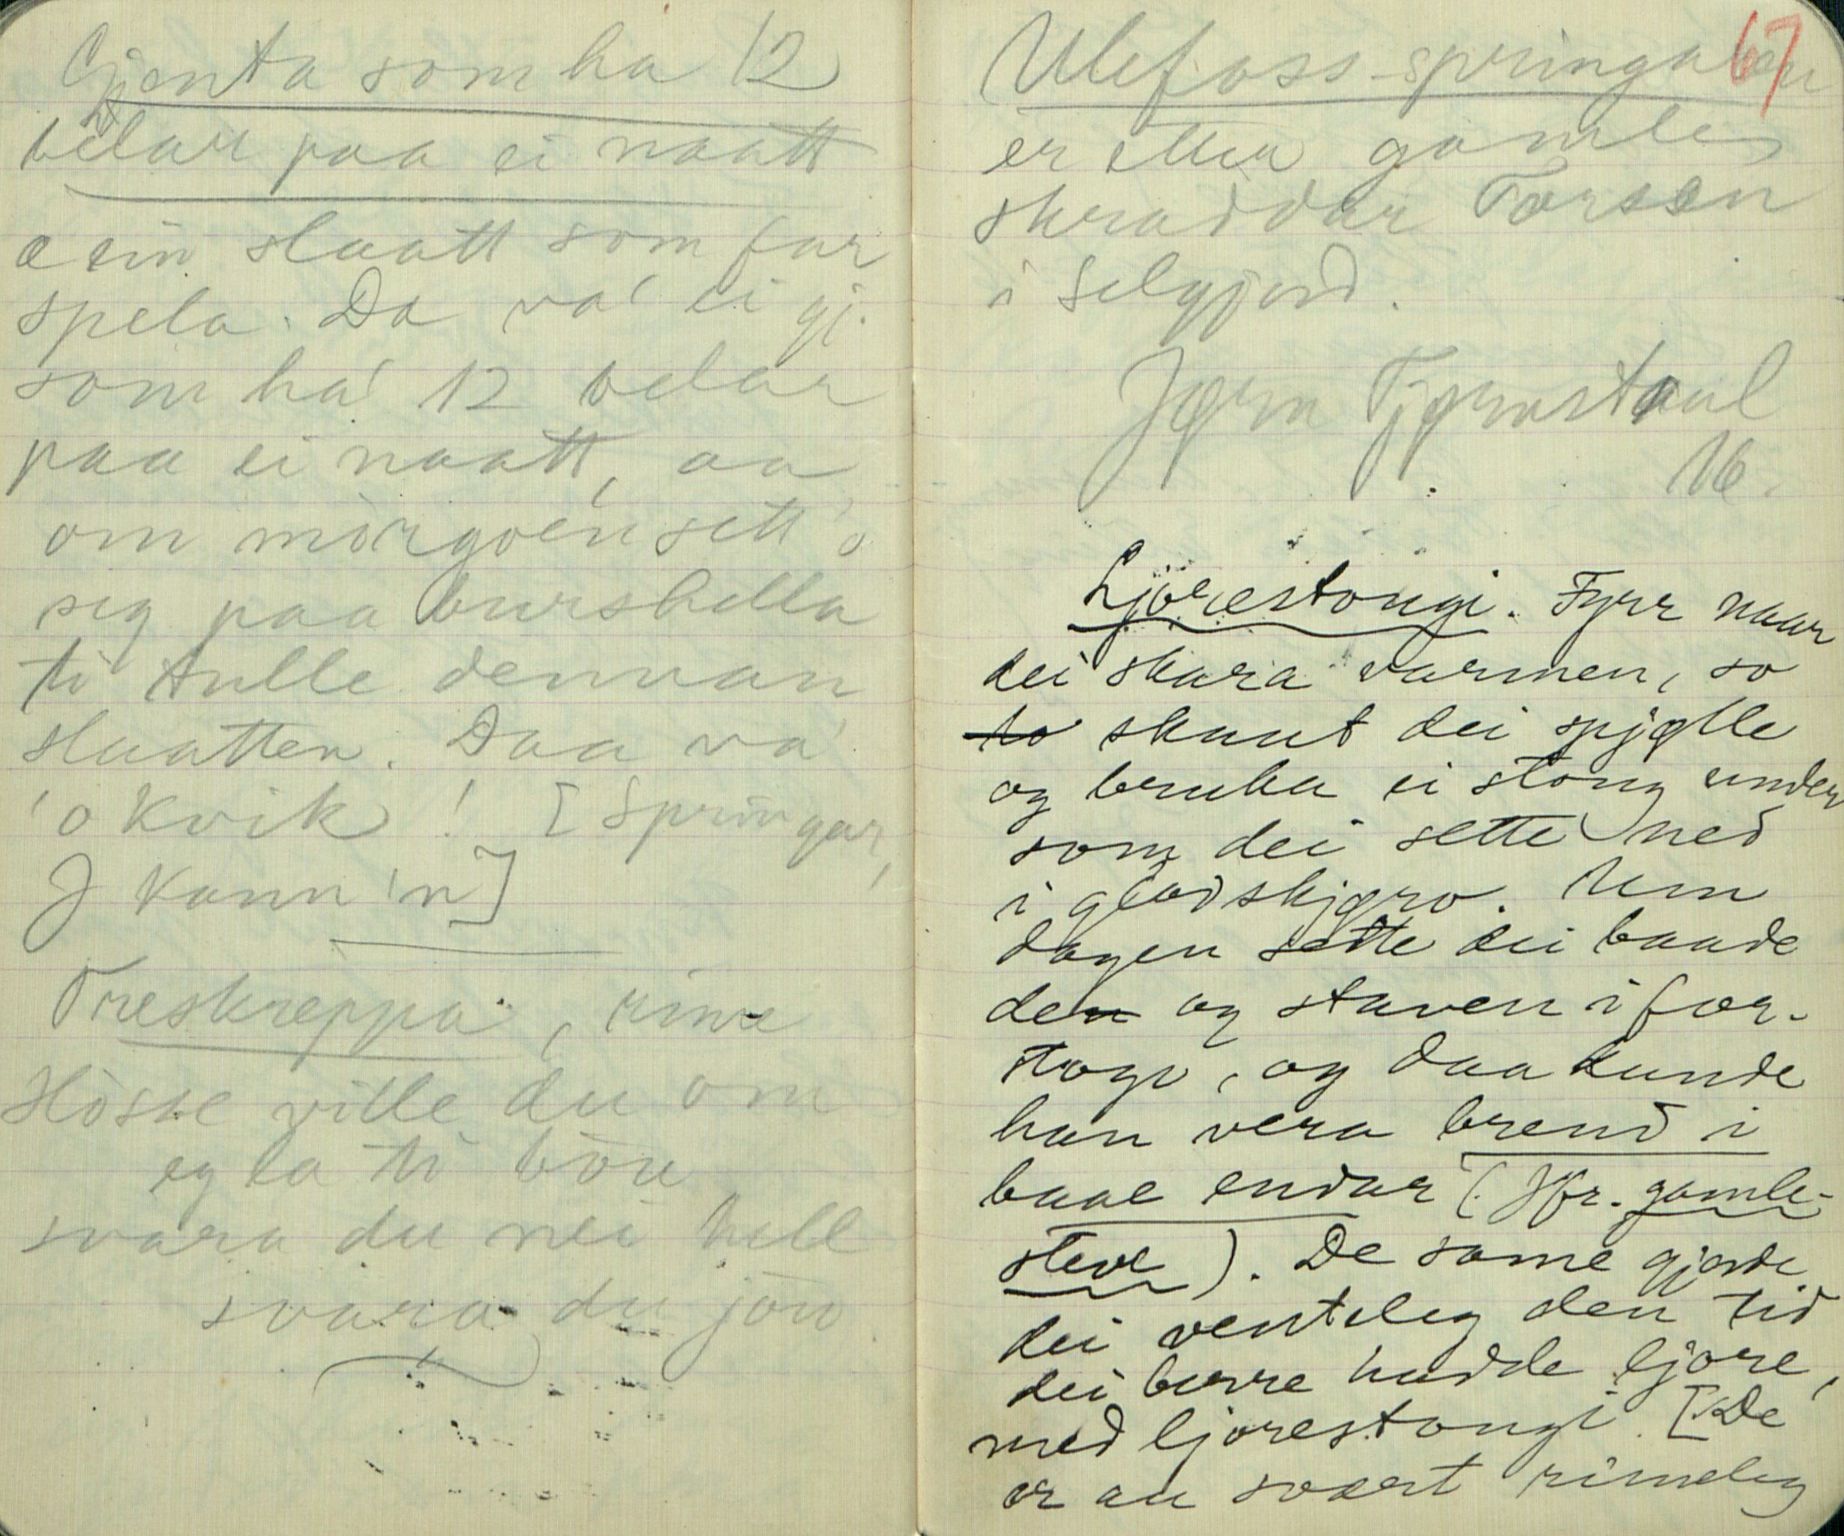 Gjenta som ha 12
belar paa ei naatt
e ein slaatt som far
spela. Da va' ei gj.
som ha' 12 belar
paa ei naatt, aa
om mòrgoen sett 'o
seg paa burshella
ti tulle dennan
slaatten. Daa va'
'o kvik! [Springar,
J kann 'n]
Treskreppa, rime
Hòsse ville du om
eg ba ti bòn
svara du nei hell
svara du jou
67
Ulefoss-springaren
er etter gamle
skraddar Torsen
i Selgjord.
Jørn Tjørnstaul
16.
Ljorestongi. Fyrr naar
dei skara varmen, so
so skaut dei spjølle
og bruka ei stong under
som dei sette ned
i glodskjøro. Um
dagen sette dei baade
den og staven i for-
stogo, og daa kunde
han vera brend i
baae endar (Jfr. gamle-
steve). De same gjorde
dei venteleg den tid
dei berre hadde ljore,
med ljorestongi. [De
er au svært rimeleg